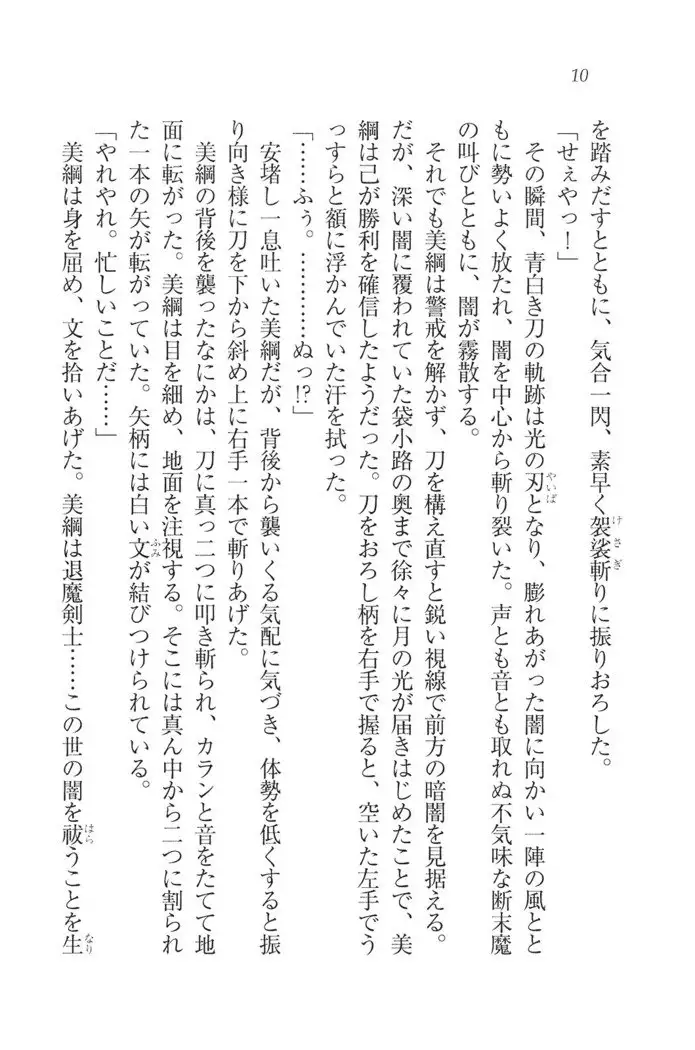 10
を踏みだすとともに、気合一閃、素早く袈裟斬りに振りおろした。
「せぇやっ！」
その瞬間、青白き刀の軌跡は光の刃となり、膨れあがった闇に向かい一陣の風とと
もに勢いよく放たれ、闇を中心から斬り裂いた。声とも音とも取れぬ不気味な断末魔
の叫びとともに、闇が霧散する。
それでも美綱は警戒を解かず、刀を構え直すと鋭い視線で前方の暗闇を見据える。
だが、深い闇に覆われていた袋小路の奥まで徐々に月の光が届きはじめたことで、美
綱は己が勝利を確信したようだった。刀をおろし柄を右手で握ると、空いた左手でう
っすらと額に浮かんでいた汗を拭った。
「……ふぅ。…………ぬっ!?」
安堵し一息吐いた美綱だが、背後から襲いくる気配に気づき、体勢を低くすると振
り向き様に刀を下から斜め上に右手一本で斬りあげた。
美綱の背後を襲ったなにかは、刀に真っ二つに叩き斬られ、カランと音をたてて地
面に転がった。美綱は目を細め、地面を注視する。そこには真ん中から二つに割られ
た一本の矢が転がっていた。矢柄には白い文が結びつけられている。
「やれやれ。忙しいことだ……」
美綱は身を屈め、文を拾いあげた。美綱は退魔剣士……この世の闇を祓うことを生